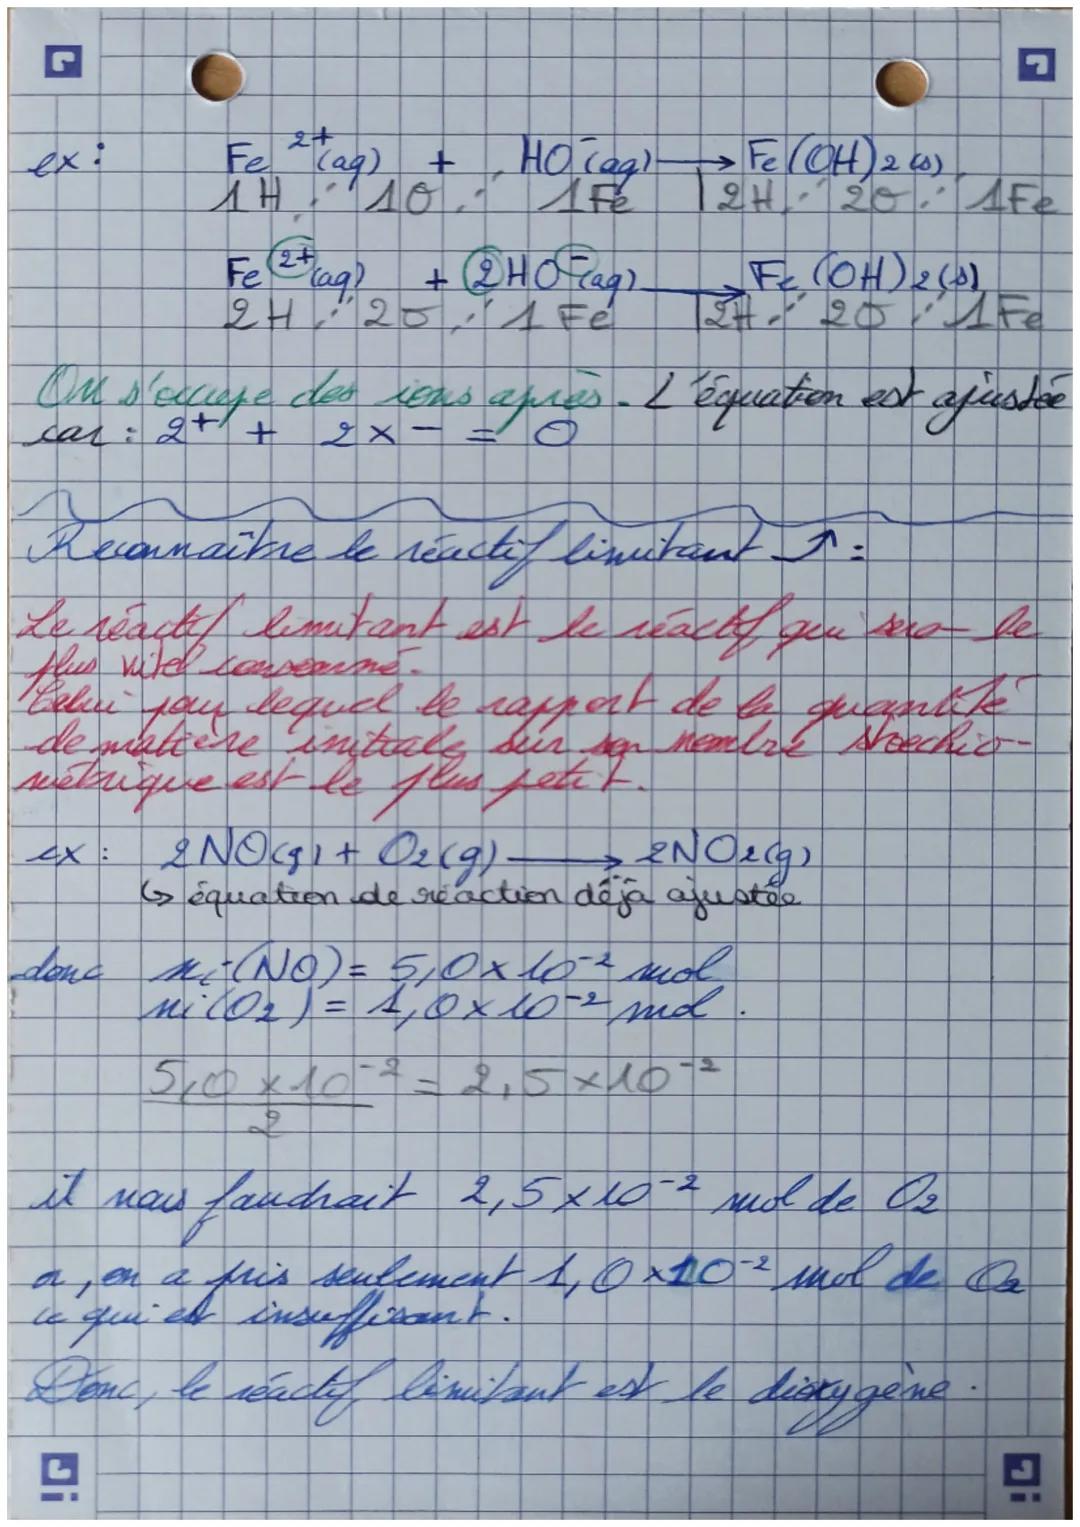 ex : Fe 2+ (aq) + HO - (aq) → Fe(OH)2 (s)
1H ; 1O ; 1Fe | 2H ; 2O ; 1Fe
Fe 2+ (aq) + 2HO - (aq) → Fe(OH)2 (s)
2H ; 2O ; 1Fe | 2H ; 2O ; 1Fe
On s'occupe des ions après. L'équation est ajustée
car : 2+ + 2 x - = 0
Reconnaître le réactif limitant :
Le réactif limitant est le réactif qui sera le
plus vite consommé.
Celui pour lequel le rapport de la quantité
de matière initiale sur son nombre stoechio-
métrique est le plus petit.
ex : 2NO(g) + O2(g) → 2NO2(g)
↳ équation de réaction déjà ajustée
donc ni(NO) = 5,0 x 10-2 mol
ni(O2) = 1,0 x 10-2 mol.
5,0 x 10-2 = 2,5 x 10-2
2
il nous faudrait 2,5 x 10-2 mol de O2
or, on a pris seulement 1,0 x 10-2 mol de O2
ce qui est insuffisant.
Donc, le réactif limitant est le dioxygène.